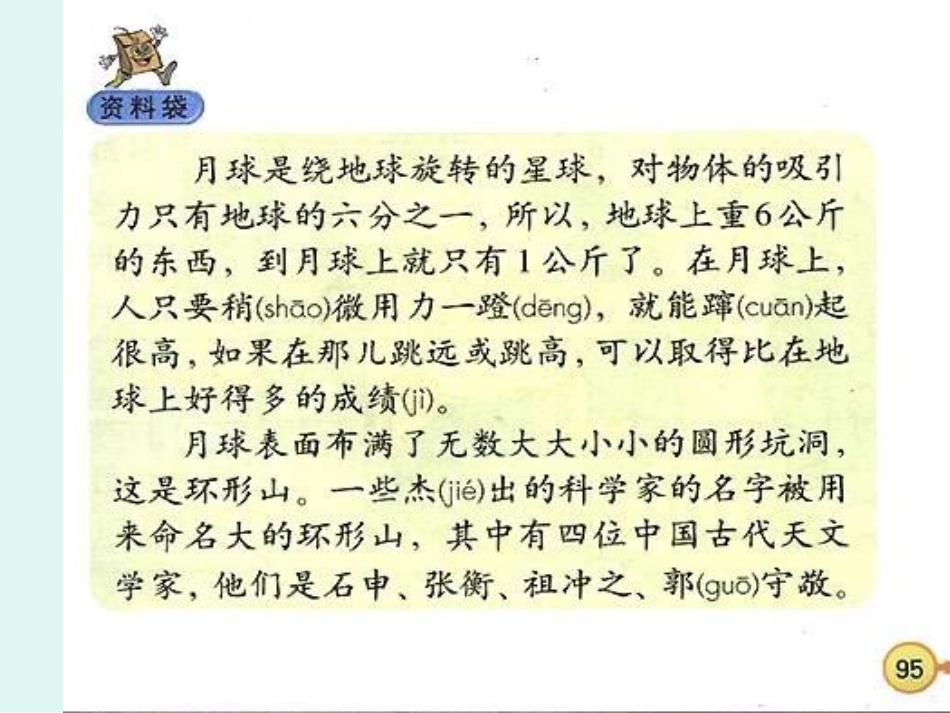 资料袋
月球是绕地球旋转的星球，对物体的吸引
力只有地球的六分之一，所以，地球上重6公斤
的东西，到月球上就只有1公斤了。在月球上，
人只要稍(shāo)微用力一蹬(dēng)，就能蹿(cuān)起
很高，如果在那儿跳远或跳高，可以取得比在地
球上好得多的成绩(jì)。
月球表面布满了无数大大小小的圆形坑洞，
这是环形山。一些杰(jié)出的科学家的名字被用
来命名大的环形山，其中有四位中国古代天文
学家，他们是石申、张衡、祖冲之、郭(guō)守敬。
95